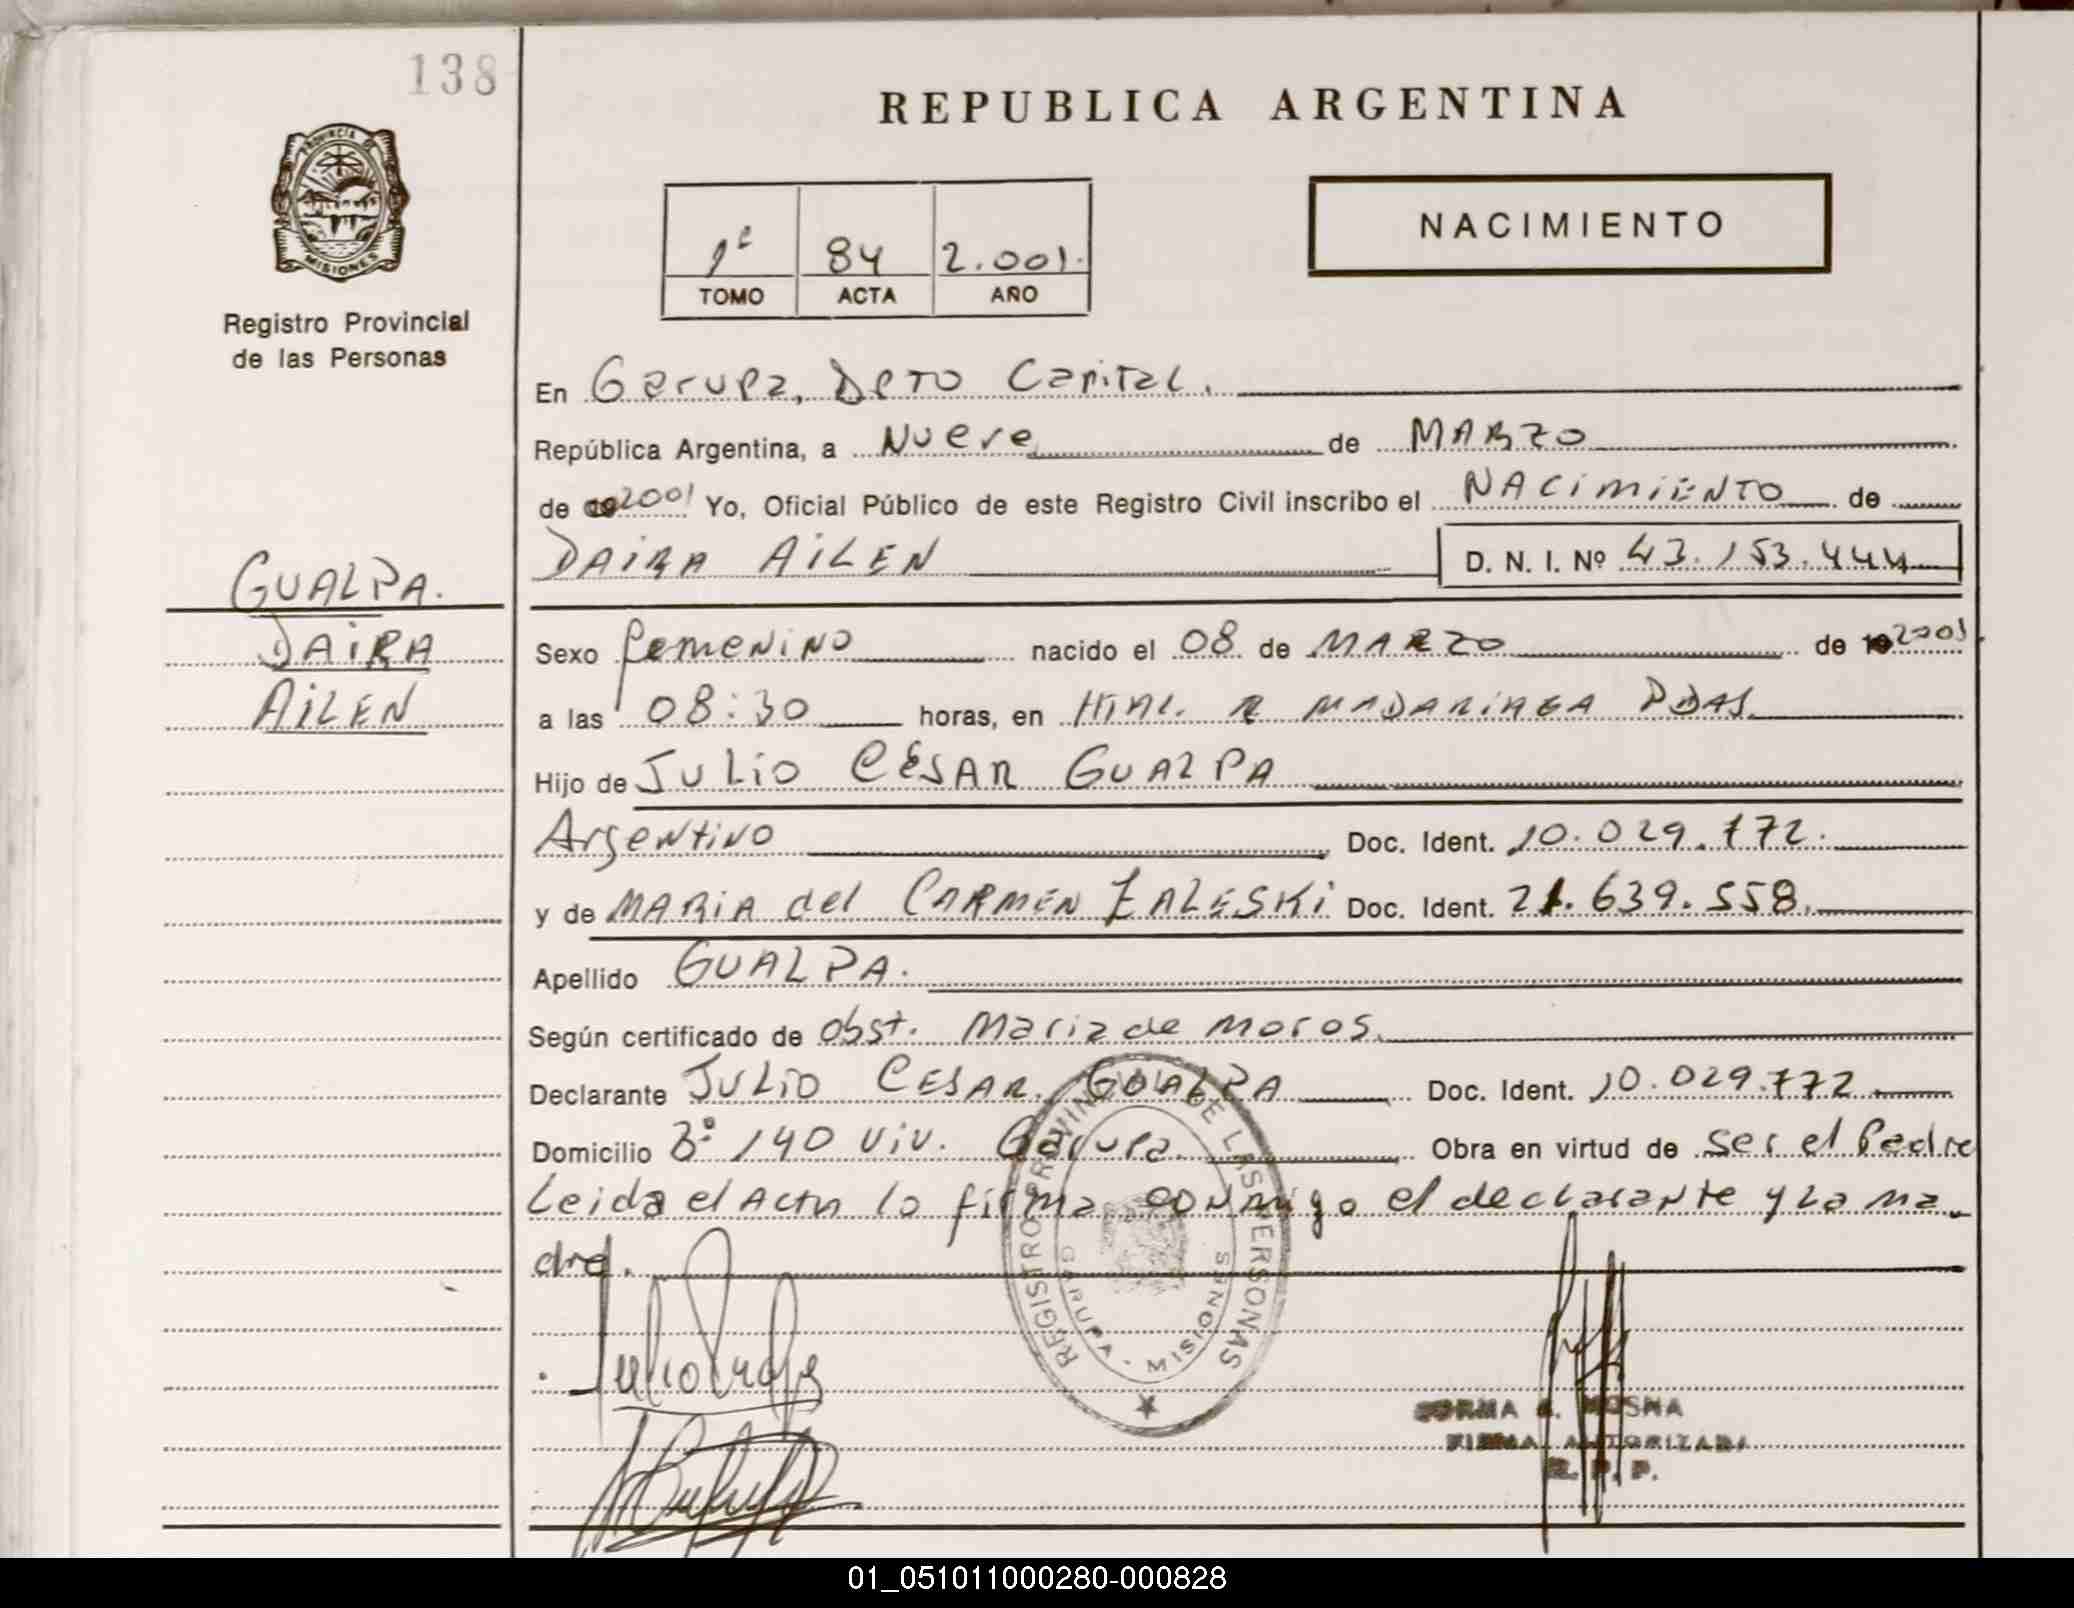 138
REPUBLICA ARGENTINA
PROVINCIA DE MISIONES
Registro Provincial
de las Personas
NACIMIENTO
1º 84 2.001.
TOMO ACTA AÑO
En Garupa, Dpto Capital.
República Argentina, a Nueve de MARZO
de 2001 Yo, Oficial Público de este Registro Civil inscribo el NACIMIENTO de
DAIRA AILEN D. N. I. Nº 43.153.444
GUALPA.
DAIRA
AILEN
Sexo femenino nacido el 08 de MARZO de 19 2001
a las 08:30 horas, en Htal. R MADARIAGA PDAS.
Hijo de JULIO CÉSAR GUALPA
Argentino Doc. Ident. 10.029.772.
y de MARIA del CARMEN ZALESKI Doc. Ident. 21.639.558.
Apellido GUALPA.
Según certificado de obst. Maria de Moros.
Declarante JULIO CESAR GUALPA Doc. Ident. 10.029.772
Domicilio Bº 140 viv. Garupa. Obra en virtud de ser el Padre
Leida el Acta la firma conmigo el declarante y La ma-
dre.
REGISTRO PROVINCIAL DE LAS PERSONAS
GARUPA - MISIONES
NORMA MOSNA
FIRMA AUTORIZADA
R. P. P.
01_051011000280-000828